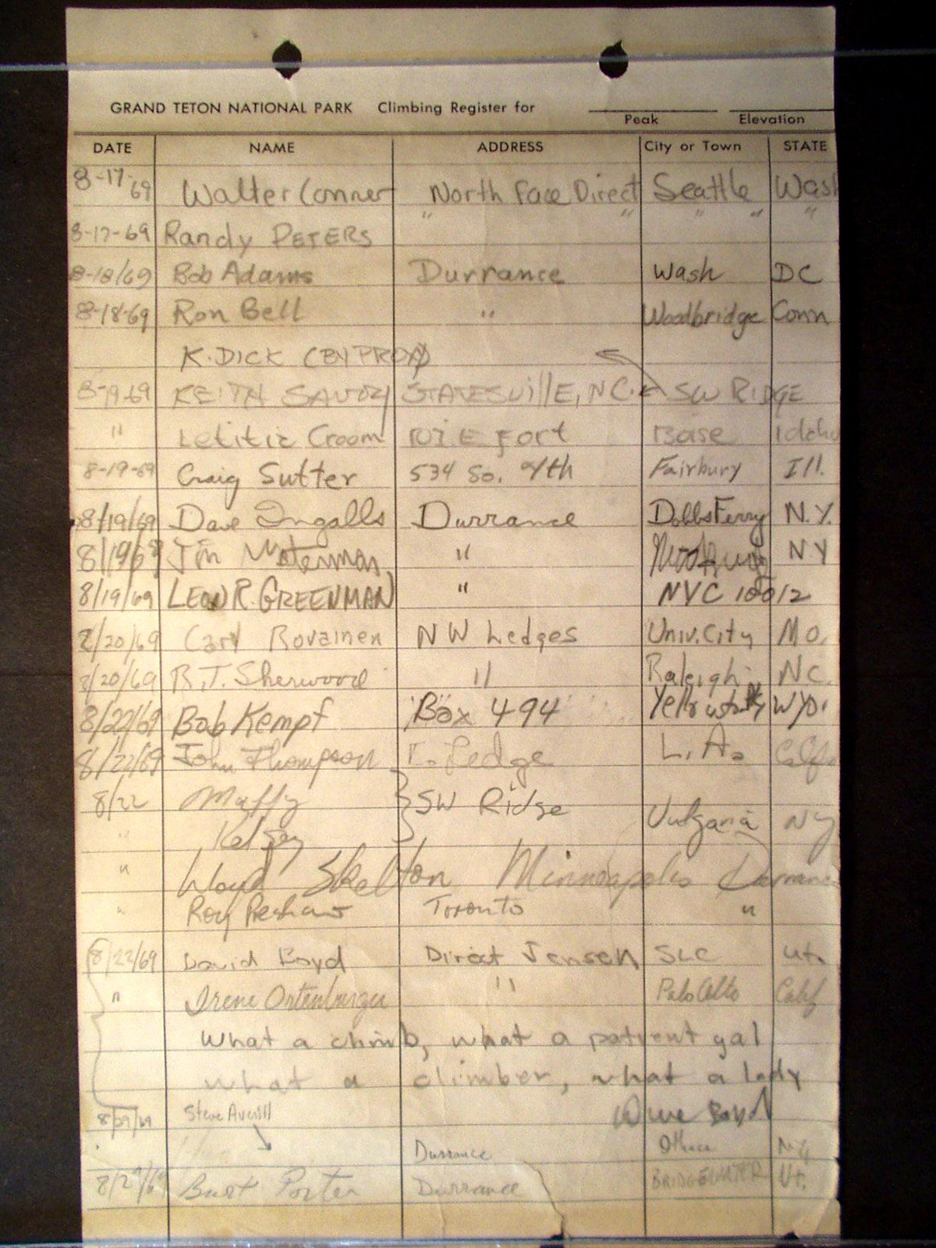 GRAND TETON NATIONAL PARK Climbing Register for
Peak Elevation
DATE NAME ADDRESS City or Town STATE
8-17-69 Walter Conner North Face Direct Seattle Wash
8-17-69 Randy PETERS " " " " "
8-18/69 Bob Adams Durrance Wash DC
8-18-69 Ron Bell " Woodbridge Conn
K. DICK
8-19-69 KEITH SAVOY STATESVILLE, N.C. SW RIDGE
" Letitia Croom Fort Boise Idaho
8-19-69 Craig Sutter 534 So. 7th Fairbury Ill.
8/19/69 Dave Ingalls Durrance Dobbs Ferry N.Y.
8/19/69 Jim Waterman " NY
8/19/69 LEON R. GREENMAN " NYC 10012
8/20/69 Carl Rovainen NW Ledges Univ. City Mo.
8/20/69 R.T. Sherwood " Raleigh, NC.
8/22/69 Bob Kempf Box 494 Wyo.
8/22/69 John Thompson Ledge L.A. Calf.
8/22 Muffy SW Ridge Vulgaria NY
" Kelsey
" Skelton Minneapolis Durrance
" Roy Toronto "
8/22/69 David Boyd Direct Jensen SLC Ut.
" Irene Ortenburger " Palo Alto Calif
What a climb, what a patient gal
what a climber, what a lady
Dave Boyd
Steve Averill
Durrance Ithaca N.Y.
Burt Porter Durrance BRIDGEWATER Vt.